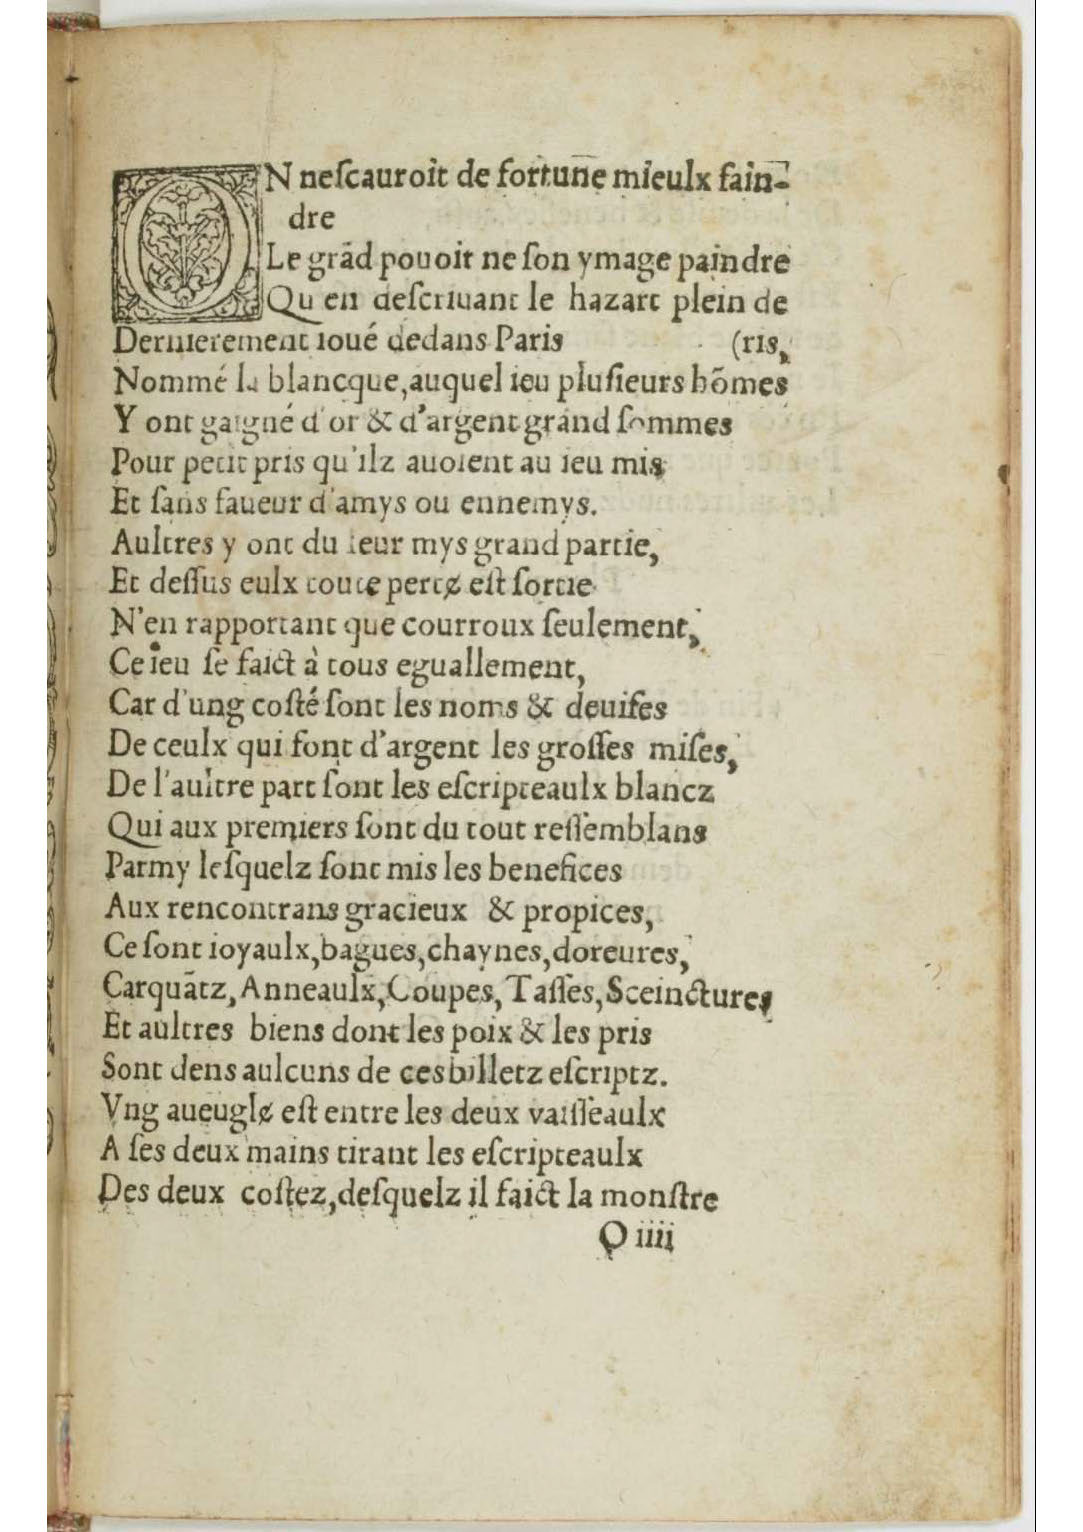 ON neſcauroit de fortune mieulx fain-
dre
Le grãd pouoir ne ſon ymage paindre
Qu'en deſcriuant le hazart plein de
Dernierement ioué dedans Paris (ris,
Nommé la blancque, auquel ieu pluſieurs hõmes
Y ont gaigné d'or & d'argent grand ſommes
Pour petit pris qu'ilz auoient au ieu mis
Et ſans faueur d'amys ou ennemys.
Aultres y ont du leur mys grand partie,
Et deſſus eulx toute pertɇ eſt ſortie
N'en rapportant que courroux ſeulement,
Ce ieu ſe faict à tous eguallement,
Car d'ung coſté ſont les noms & deuiſes
De ceulx qui font d'argent les groſſes miſes,
De l'aultre part ſont les eſcripteaulx blancz
Qui aux premiers ſont du tout reſſemblans
Parmy leſquelz ſont mis les benefices
Aux rencontrans gracieux & propices,
Ce ſont ioyaulx, bagues, chaynes, doreures,
Carquãtz, Anneaulx, Coupes, Taſſes, Sceinctures
Et aultres biens dont les poix & les pris
Sont dens aulcuns de ces billetz eſcriptz.
Vng aueuglɇ eſt entre les deux vaiſſeaulx
A ſes deux mains tirant les eſcripteaulx
Des deux coſtez, deſquelz il faict la monſtre
Q iiii